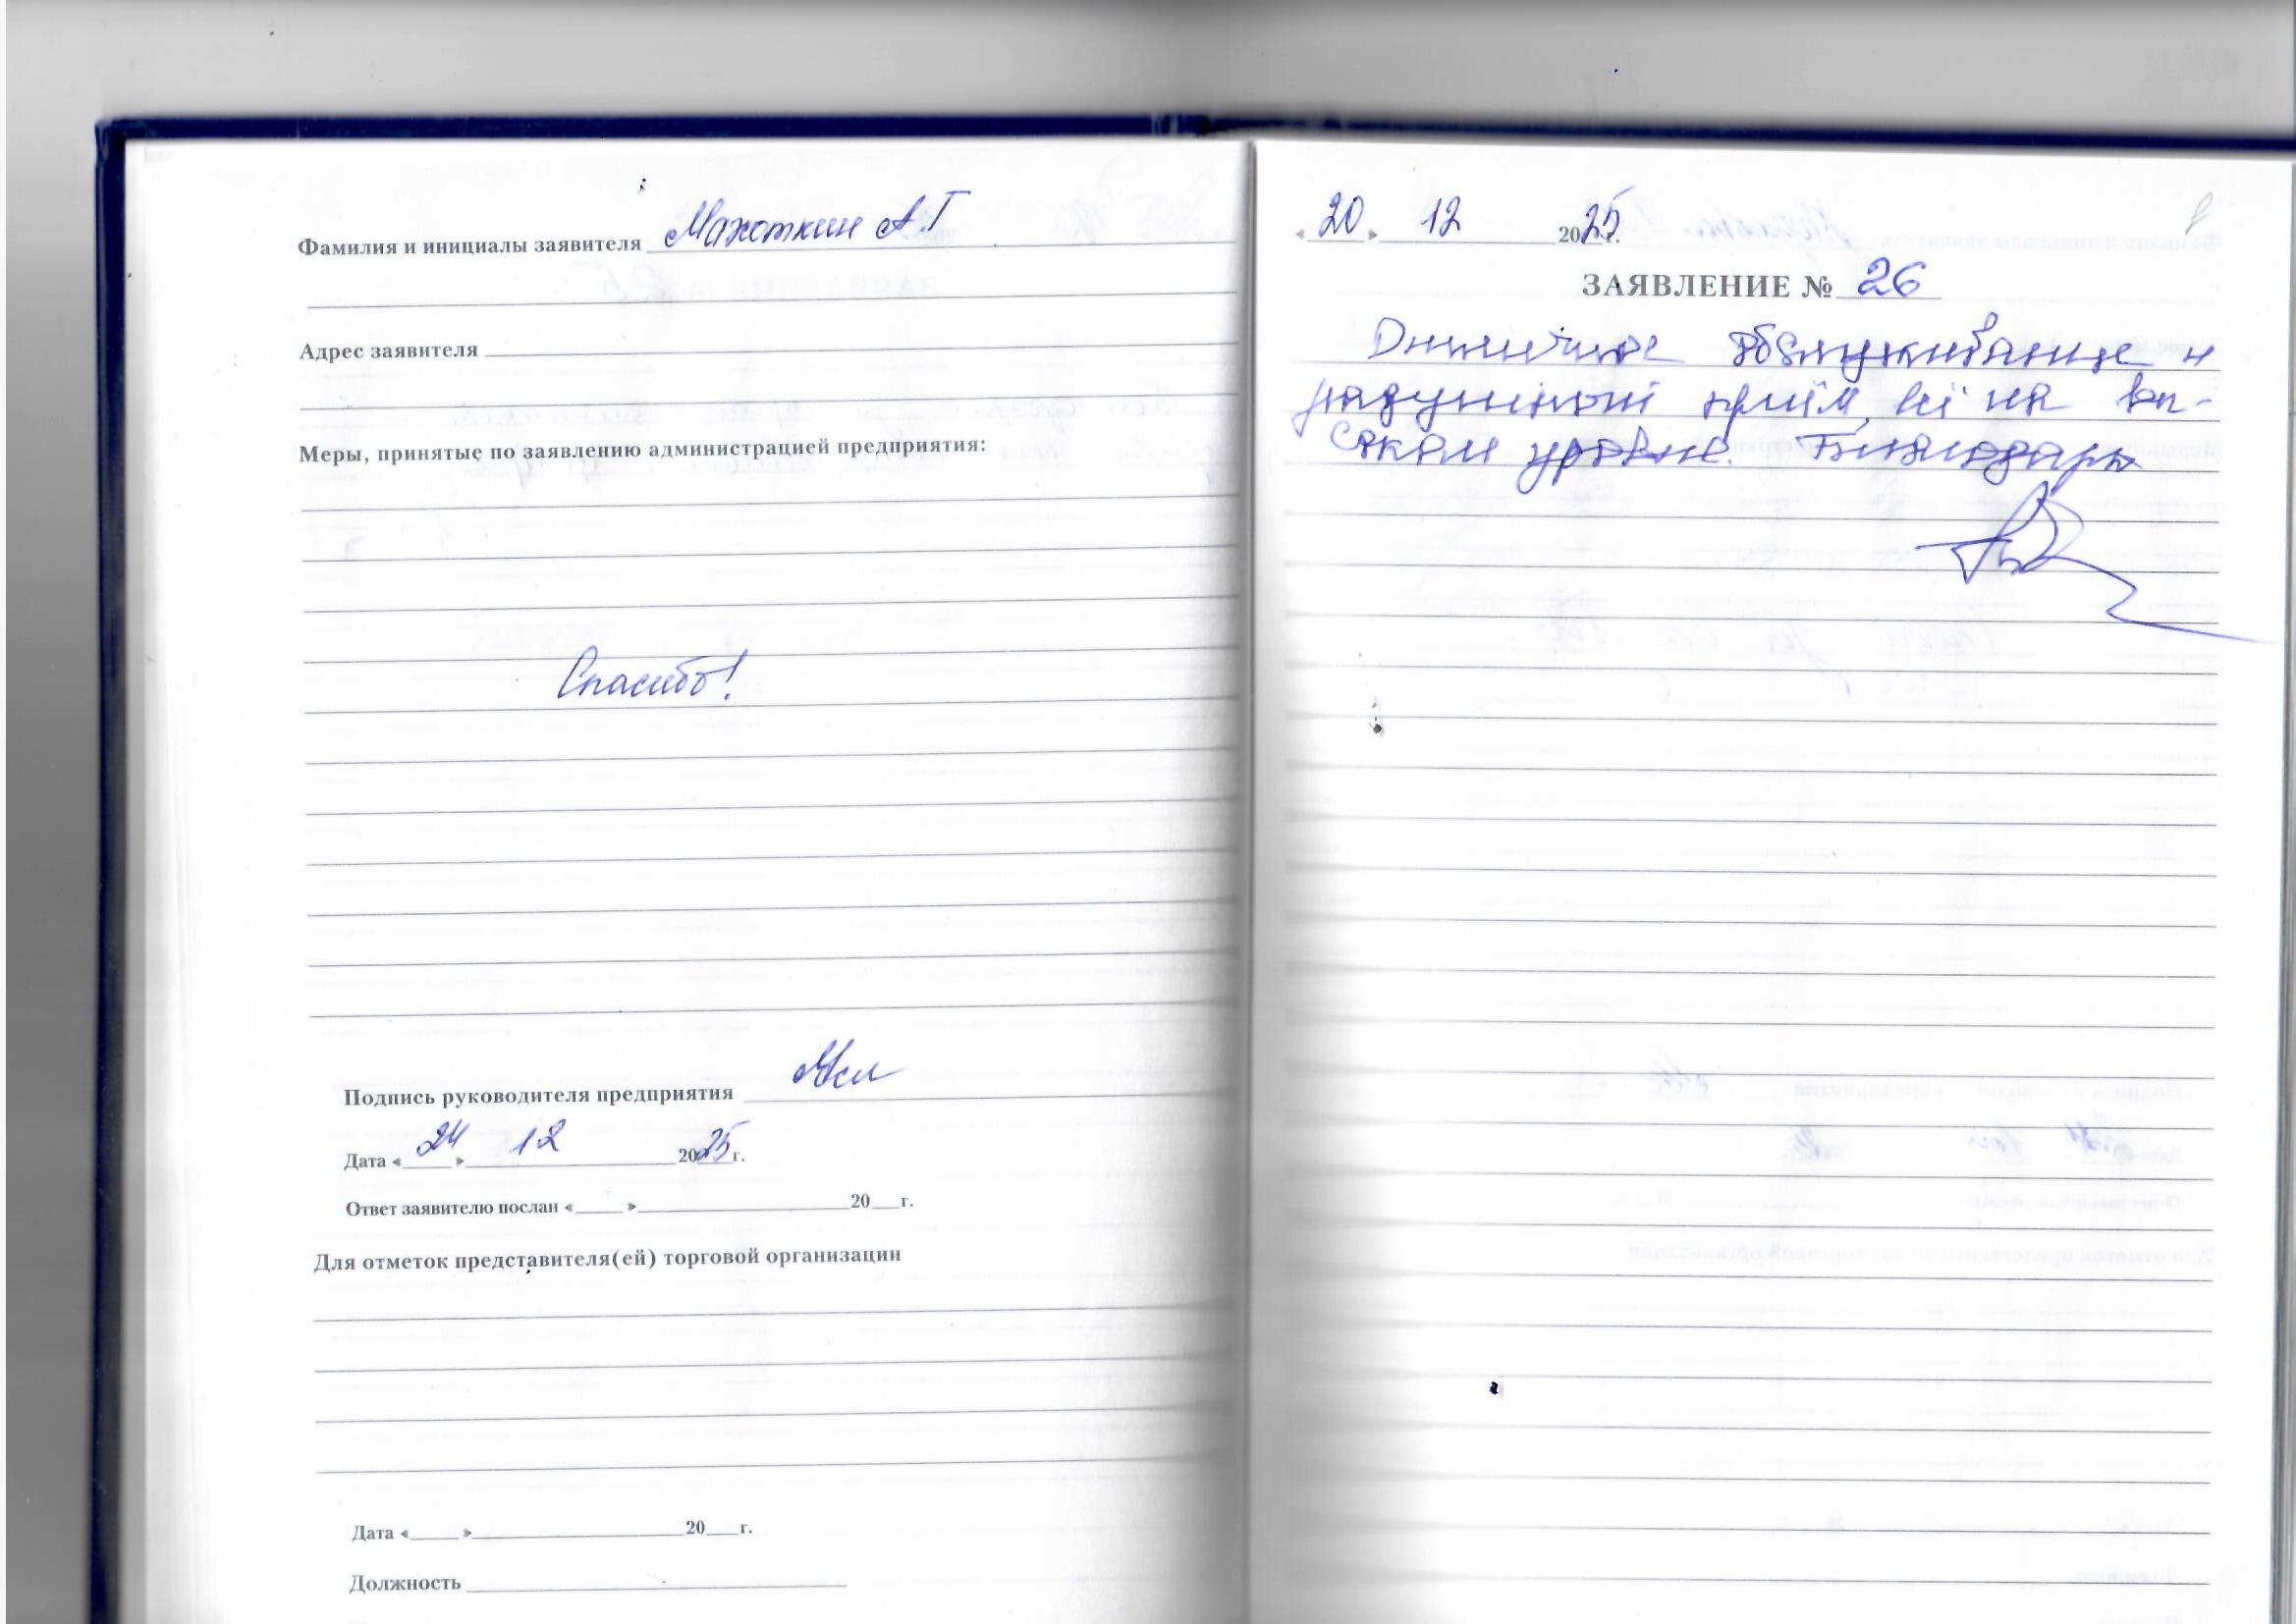 Фамилия и инициалы заявителя Махоткин А.Г
Адрес заявителя
Меры, принятые по заявлению администрацией предприятия:
Спасибо!
Подпись руководителя предприятия
Дата «24» 12 2025г.
Ответ заявителю послан « » 20 г.
Для отметок представителя(ей) торговой организации
Дата « » 20 г.
Должность
«20» 12 2025г.
ЗАЯВЛЕНИЕ № 26
Отличное обслуживание и
радушный приём, всё на вы-
соком уровне. Благодарю